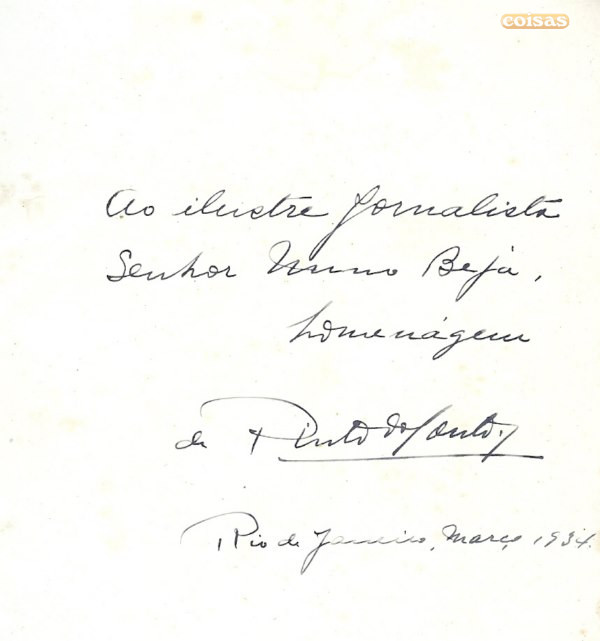 coisas
Ao ilustre jornalista
Senhor Nuno Beja,
homenágem
de Pinto do Couto
Rio de Janeiro, Março 1934.